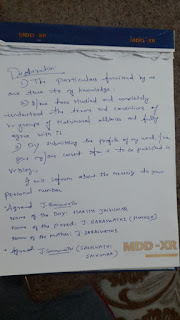 MDD-XR
Declaration
1) The particulars furnished by me
are true to my knowledge.
2) I/we have studied and completely
understood the terms and conditions of
Vrgroups of matrimonial alliance and fully
agree with it
3) By submitting the profile of my ward / I've
given my/our consent for it to be published in
Vrblogs.
I will inform about the marriage to your
personal number
Agreed J.
Name of the Boy: HARISH JAIKUMAR
Name of the Parent: J. SARASWATHI (MOTHER)
Name of the Mother: J. SARASWATHI
Agreed J. (SARASWATHI
JAIKUMAR)
MDD-XR